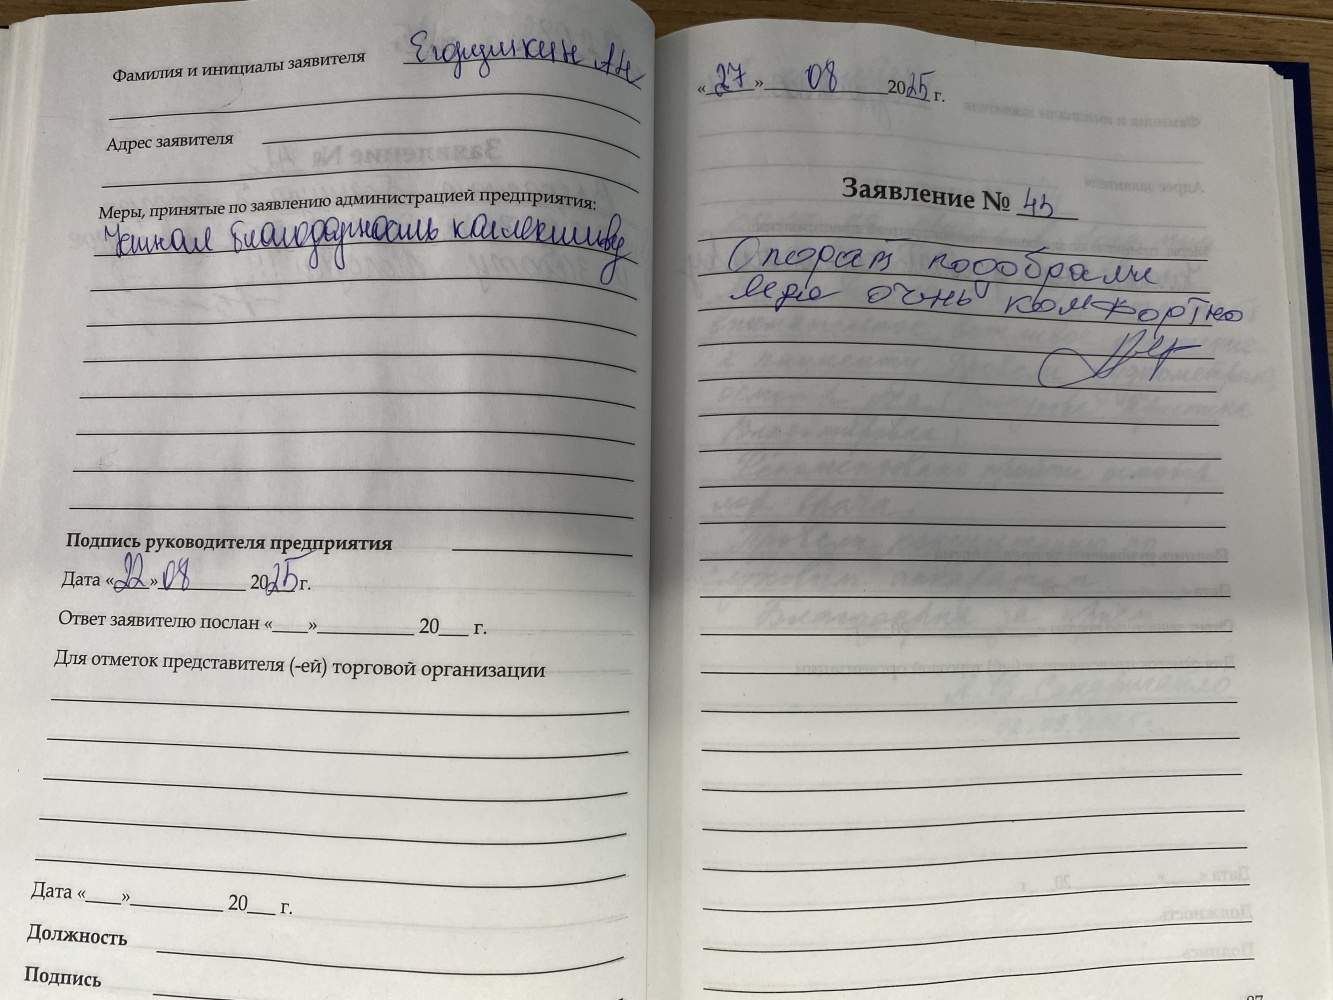 Фамилия и инициалы заявителя Егорушкин АН
Адрес заявителя
Меры, принятые по заявлению администрацией предприятия:
благодарность коллективу
Подпись руководителя предприятия
Дата «22» 08 2025г.
Ответ заявителю послан «___»__________ 20___ г.
Для отметок представителя (-ей) торговой организации
Дата «___»__________ 20___ г.
Должность
Подпись
«27» 08 2025 г.
Заявление №
подобрали
очень комфортно